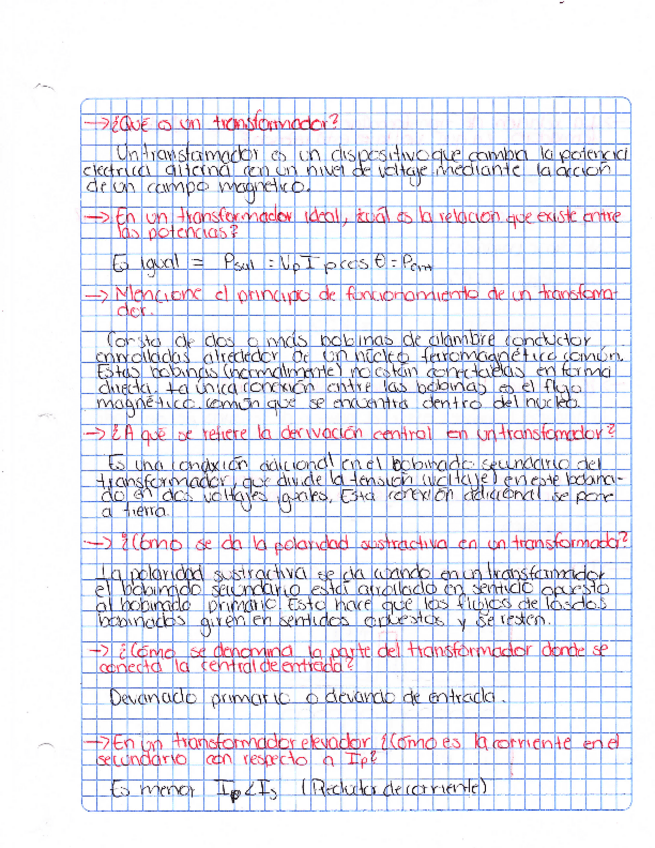 →¿Qué es un transformador?
Un transfamador es un dispositivo que cambia la potencia
electrica alterna con un nivel de voltaje mediante la acción
de un campo magnetico.
→ En un transformador ideal, ¿cuál es la relacion que existe entre
las potencias?
Es igual = Psal = Vp Ip cos θ = Pent
→ Mencione el principo de funcionamiento de un transforma-
dor.
Consta de dos o más bobinas de alambre conductor
enrrolladas alrededor de un núcleo ferromagnético común.
Estas bobinas (normalmente) no están conectadas en forma
directa. La única conexión entre las bobinas es el flujo
magnético común que se encuentra dentro del núcleo.
→ ¿A qué se refiere la derivación central en un transfomador?
Es una conexión adicional en el bobinado secundario del
transformador, que divide la tensión (voltaje) en este bobina-
do en dos voltajes iguales. Esta conexión adicional se pone
a tierra.
→ ¿Cómo se da la polaridad sustractiva en un transformador?
La polaridad sustractiva se da cuando en un transformador
el bobinado secundario está arrollado en sentido opuesto
al bobinado primario. Esto hace que los flujos de los dos
bobinados giren en sentidos opuestos y se resten.
→ ¿Cómo se denomina la parte del transformador donde se
conecta la central de entrada?
Devanado primario o devando de entrada.
→ En un transformador elevador ¿Cómo es la corriente en el
secundario con respecto a Ip?
Es menor Ip < Is (Reductor de corriente)